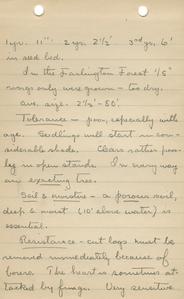 1 yr. 11"; 2 yr. 2½' 3rd yr. 6'
in seed bed.
In the Farlington Forest
rings only were grown - too dry.
ave. size. 2½' - 50'.
Tolerance - poor, especially with
age. Seedlings will start in con-
siderable shade. Clears rather poor-
ly in open stands. In every way
an exacting tree.
Soil & moisture - a porous soil,
deep & moist (10' above water) is
essential.
Resistance - cut logs must be
removed immediately because of
borers. The heart is sometimes at-
tacked by fungi. Very sensitive